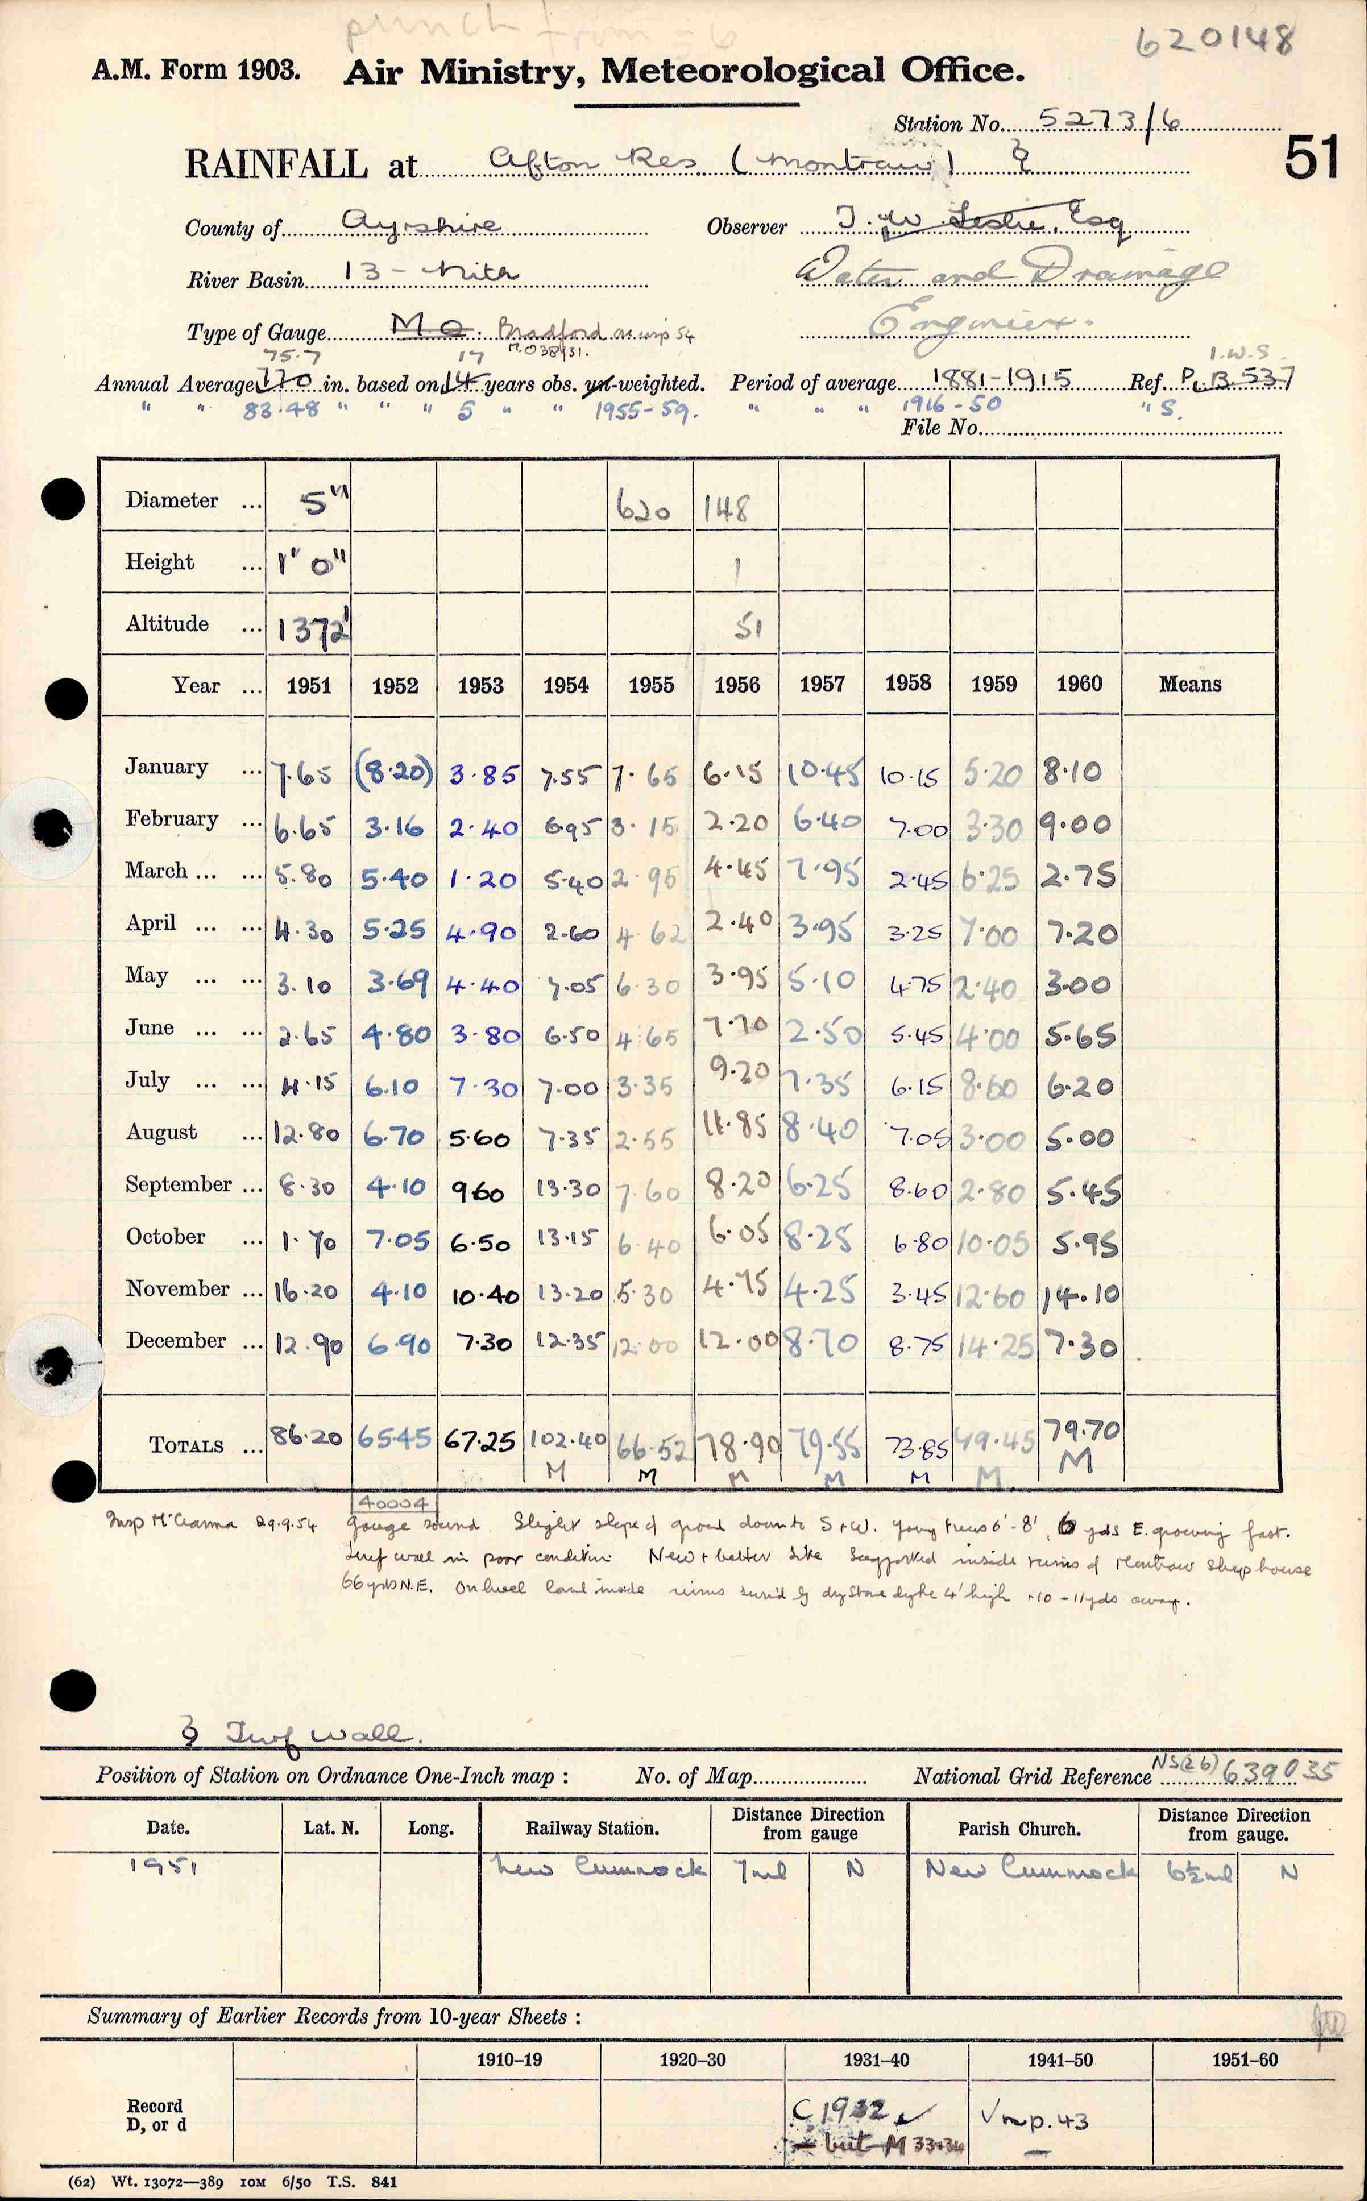 punch from = 6
620148
A.M. Form 1903. Air Ministry, Meteorological Office.
Station No. 5273/6
RAINFALL at Afton Res (Montraw) 51
County of Ayrshire Observer J. W. Leslie, Esq
River Basin 13 - Nith Water and Drainage
Type of Gauge M O. Bradford as insp 54 Engineer.
M.O 38/31.
75.7 17 I.W.S.
Annual Average 770 in. based on 14 years obs. un-weighted. Period of average 1881-1915 Ref. P. B. 537
" " 83.48 " " " 5 " " 1955-59. " " " 1916-50 " S.
File No.
Diameter ... 5" 620 148
Height ... 1' 0" 1
Altitude ... 1372' 51
Year ... 1951 1952 1953 1954 1955 1956 1957 1958 1959 1960 Means
January ... 7.65 (8.20) 3.85 7.55 7.65 6.15 10.45 10.15 5.20 8.10
February ... 6.65 3.16 2.40 6.95 3.15 2.20 6.40 7.00 3.30 9.00
March ... ... 5.80 5.40 1.20 5.40 2.95 4.45 7.95 2.45 6.25 2.75
April ... ... 4.30 5.25 4.90 2.60 4.62 2.40 3.95 3.25 7.00 7.20
May ... ... 3.10 3.69 4.40 7.05 6.30 3.95 5.10 4.75 2.40 3.00
June ... ... 2.65 4.80 3.80 6.50 4.65 7.70 2.50 5.45 4.00 5.65
July ... ... 4.15 6.10 7.30 7.00 3.35 9.20 7.35 6.15 8.60 6.20
August ... 12.80 6.70 5.60 7.35 2.55 11.85 8.40 7.05 3.00 5.00
September ... 8.30 4.10 9.60 13.30 7.60 8.20 6.25 8.60 2.80 5.45
October ... 1.70 7.05 6.50 13.15 6.40 6.05 8.25 6.80 10.05 5.95
November ... 16.20 4.10 10.40 13.20 5.30 4.75 4.25 3.45 12.60 14.10
December ... 12.90 6.90 7.30 12.35 12.00 12.00 8.70 8.75 14.25 7.30
TOTALS ... 86.20 65.45 67.25 102.40 66.52 78.90 79.55 73.85 79.45 79.70
M M M M M M M
40004
Insp 29.9.54 gauge sound. Slight slope of ground down to S+W. young trees 6'-8', 6 yds E. growing fast.
Turf wall in poor condition New + better site suggested inside ruins of Montraw Sheep house
66 yds N.E. On level land inside ruins surr'd by dry stone dyke 4' high 10 - 11 yds away.
Turf wall.
Position of Station on Ordnance One-Inch map : No. of Map National Grid Reference NS(26) 639035
Date. Lat. N. Long. Railway Station. Distance Direction from gauge Parish Church. Distance Direction from gauge.
1951 New Cumnock 7 ml N New Cumnock 6½ ml N
Summary of Earlier Records from 10-year Sheets :
1910-19 1920-30 1931-40 1941-50 1951-60
Record
D, or d
C 1932 ✓ √ m p. 43
- but M 33+34 -
(62) Wt. 13072—389 10M 6/50 T.S. 841